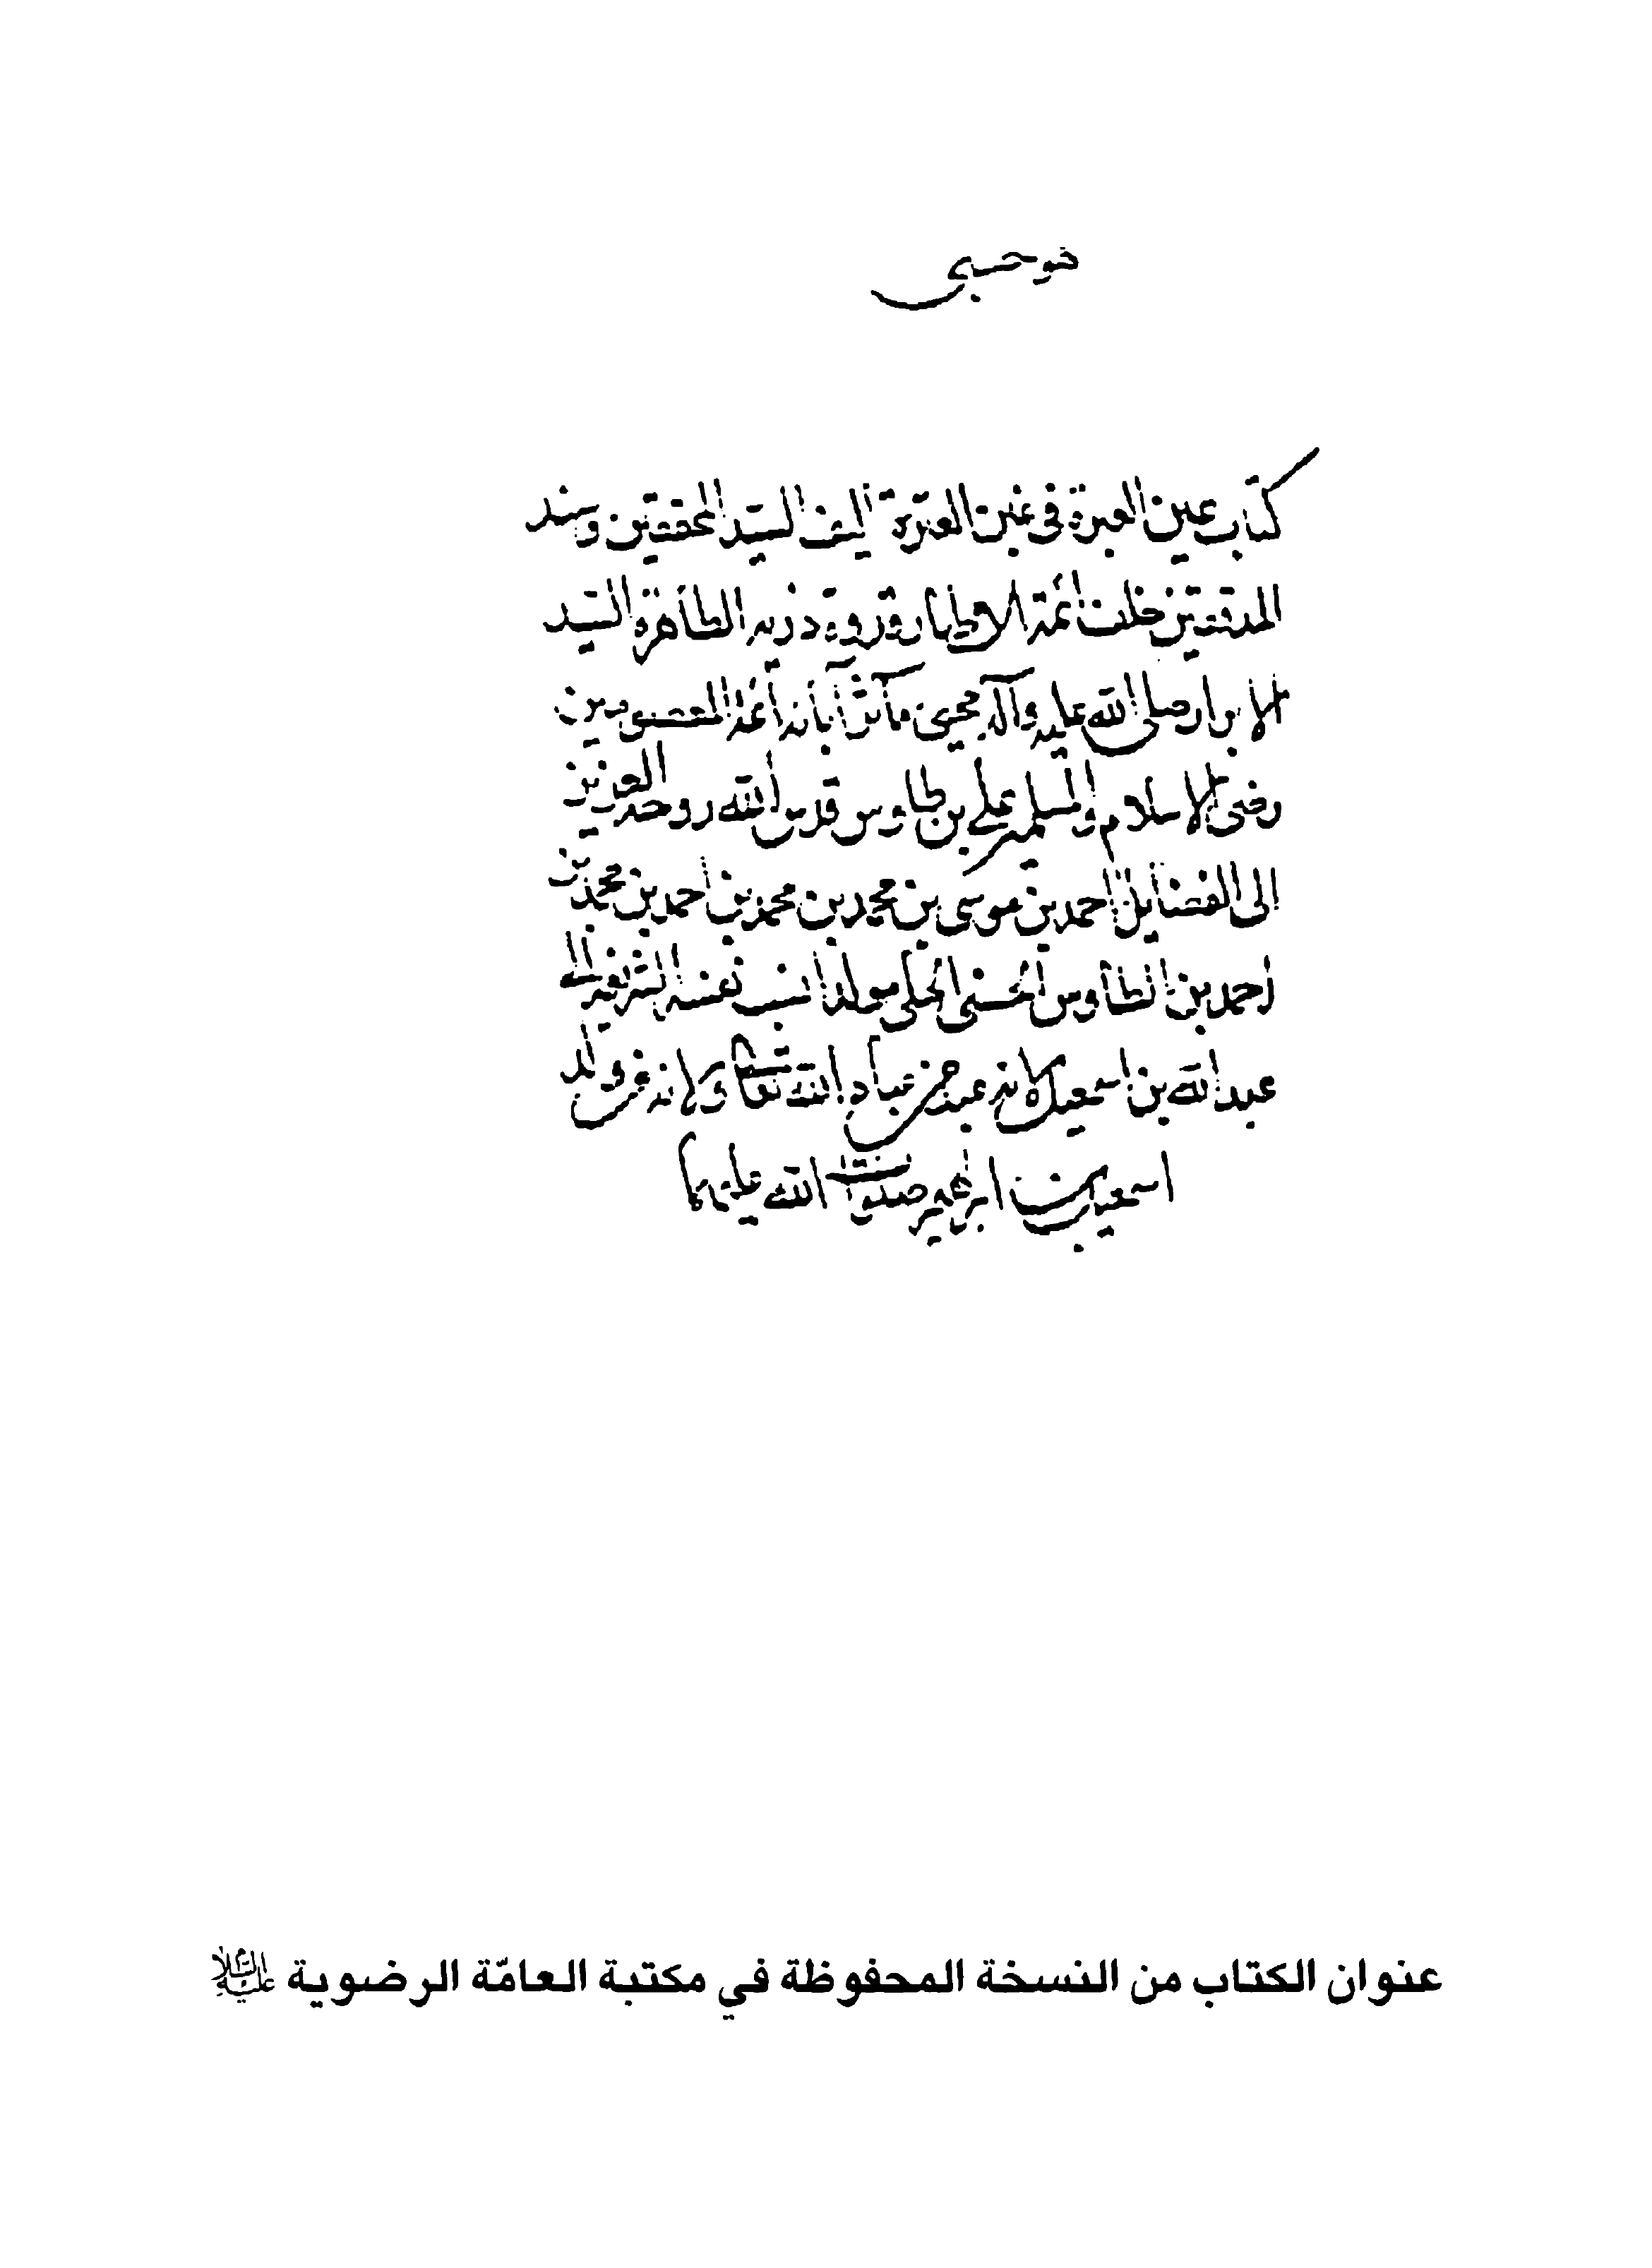 هو حسبي
كتاب عين العبرة في غبن العترة تاليف السيد المحققين وسند
المدققين خلف ائمة الاطهار وقدوة ذريه الطاهرة السيد
الابرار صلى الله عليه وآله محيي مآثر آبائه أئمة المعصومين
رضى الاسلام والمسلمين علي بن طاوس قدس الله روحه العزيز
ابى الفضايل احمد بن موسى بن محمد بن محمد بن احمد بن محمد بن
احمد بن الطاوس الحسنى الحلي مولدا نسب نفسه الشريفة الى
عبد الله بن اسمعيل لانه عبد من عباد الله تعالى ولانه من ولد
اسمعيل بن ابراهيم صلوات الله عليهما
عنوان الكتاب من النسخة المحفوظة في مكتبة العامّة الرضوية عليه السلام